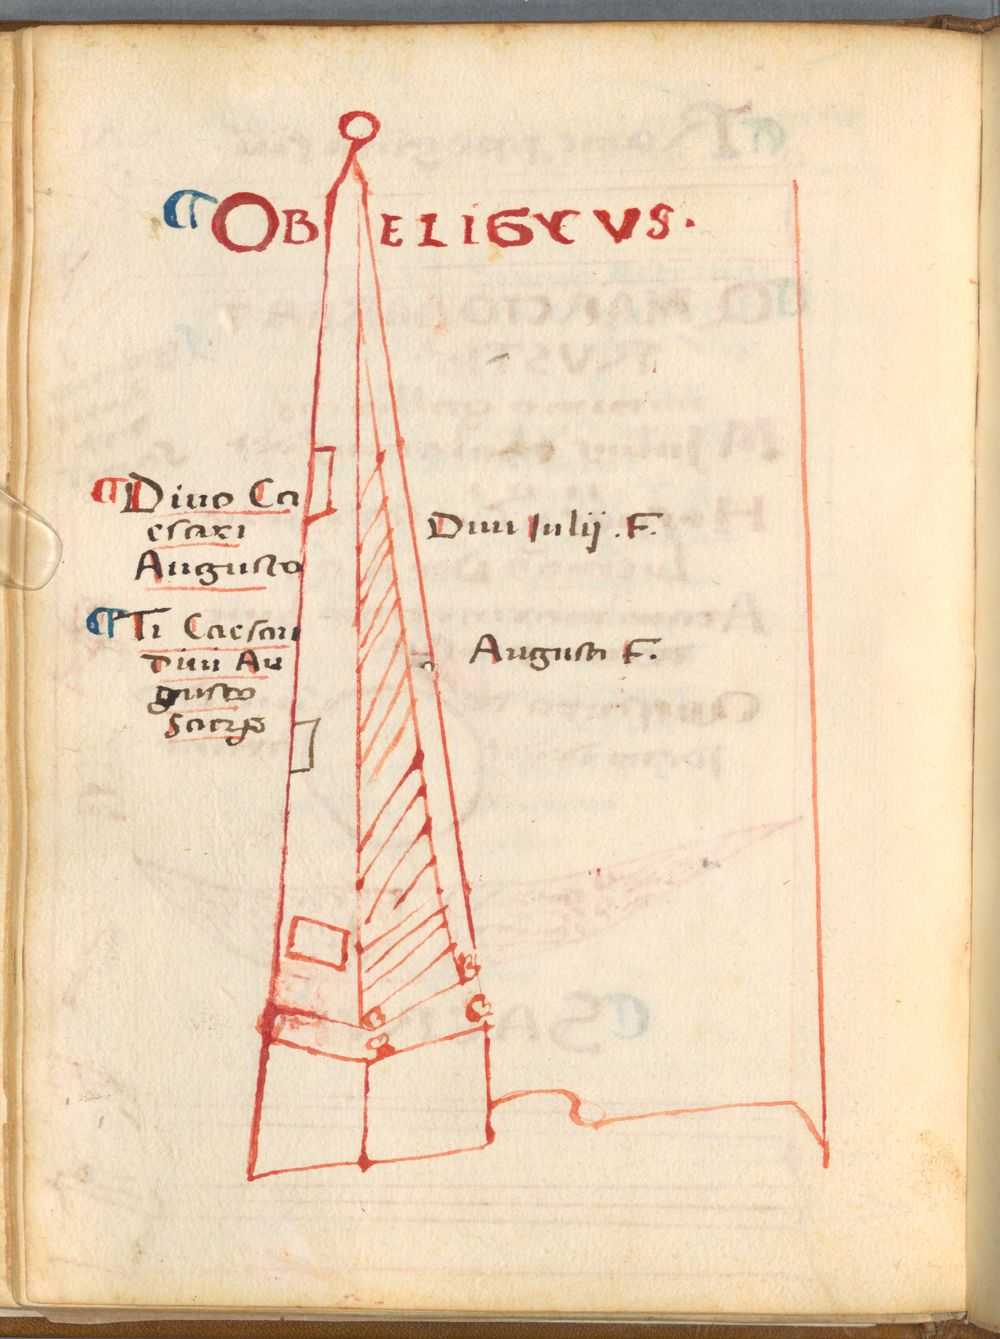 ¶ OBELIGYCVS.
¶ Diuo Ca
esari
Augusto
Diui Iulij .F.
¶ Ti Caesari
diui Au
gusto
Augusti F.